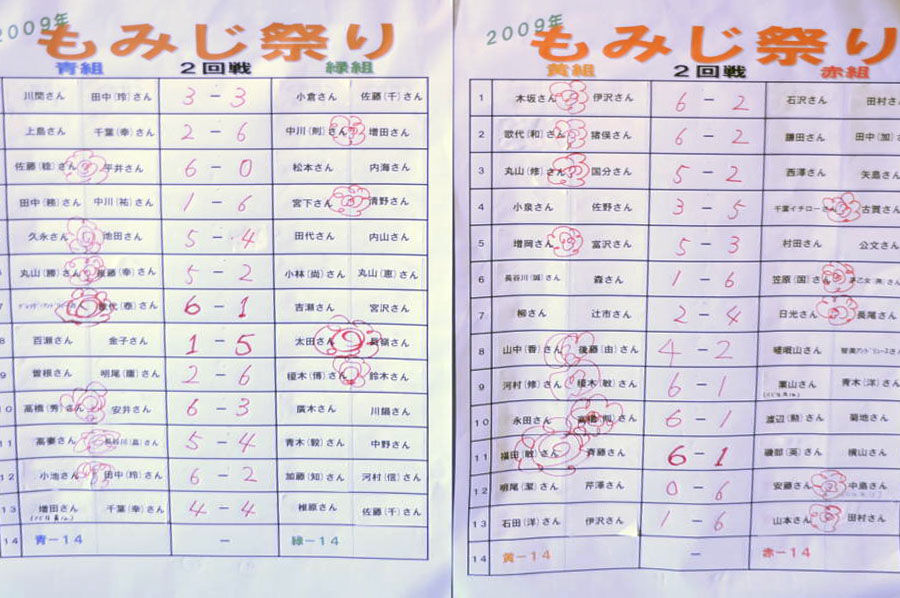 2009年
もみじ祭り
青組 2回戦 緑組
川関さん 田中(玲)さん 3 - 3 小倉さん 佐藤(千)さん
上島さん 千葉(幸)さん 2 - 6 中川(則)さん 増田さん
佐藤(稔)さん 平井さん 6 - 0 松本さん 内海さん
田中(務)さん 中川(祐)さん 1 - 6 宮下さん 清野さん
久永さん 池田さん 5 - 4 田代さん 内山さん
丸山(勝)さん 斎藤(幸)さん 5 - 2 小林(尚)さん 丸山(恵)さん
7 歌代(春)さん 6 - 1 吉瀬さん 宮沢さん
8 百瀬さん 金子さん 1 - 5 太田さん 長嶺さん
9 曽根さん 明尾(庸)さん 2 - 6 榎木(博)さん 鈴木さん
10 高橋(秀)さん 安井さん 6 - 3 廣木さん 川鍋さん
11 高妻さん 長谷川(昌)さん 5 - 4 青木(毅)さん 中野さん
12 小池さん 田中(玲)さん 6 - 2 加藤(知)さん 河村(信)さん
13 増田さん 千葉(幸)さん 4 - 4 椎原さん 佐藤(千)さん
14 青-14 - 緑-14
2009年
もみじ祭り
黄組 2回戦 赤組
1 木坂さん 伊沢さん 6 - 2 石沢さん 田村さん
2 歌代(和)さん 猪俣さん 6 - 2 鎌田さん 田中(加)さん
3 丸山(修)さん 国分さん 5 - 2 西澤さん 矢島さん
4 小泉さん 佐野さん 3 - 5 千葉イチローさん 古賀さん
5 増岡さん 富沢さん 5 - 3 村田さん 公文さん
6 長谷川(誠)さん 森さん 1 - 6 笠原(国)さん
7 柳さん 辻市さん 2 - 4 日光さん 長尾さん
8 山中(香)さん 後藤(由)さん 4 - 2 嵯峨山さん
9 河村(修)さん 榎木(敏)さん 6 - 1 葉山さん 青木(洋)さん
10 永田さん 高橋さん 6 - 1 渡辺(勲)さん 菊地さん
11 福田(敏)さん 斉藤さん 6 - 1 磯部(英)さん 横山さん
12 明尾(潔)さん 芹澤さん 0 - 6 安藤さん 中島さん
13 石田(洋)さん 伊沢さん 1 - 6 山本さん 田村さん
14 黄-14 - 赤-14